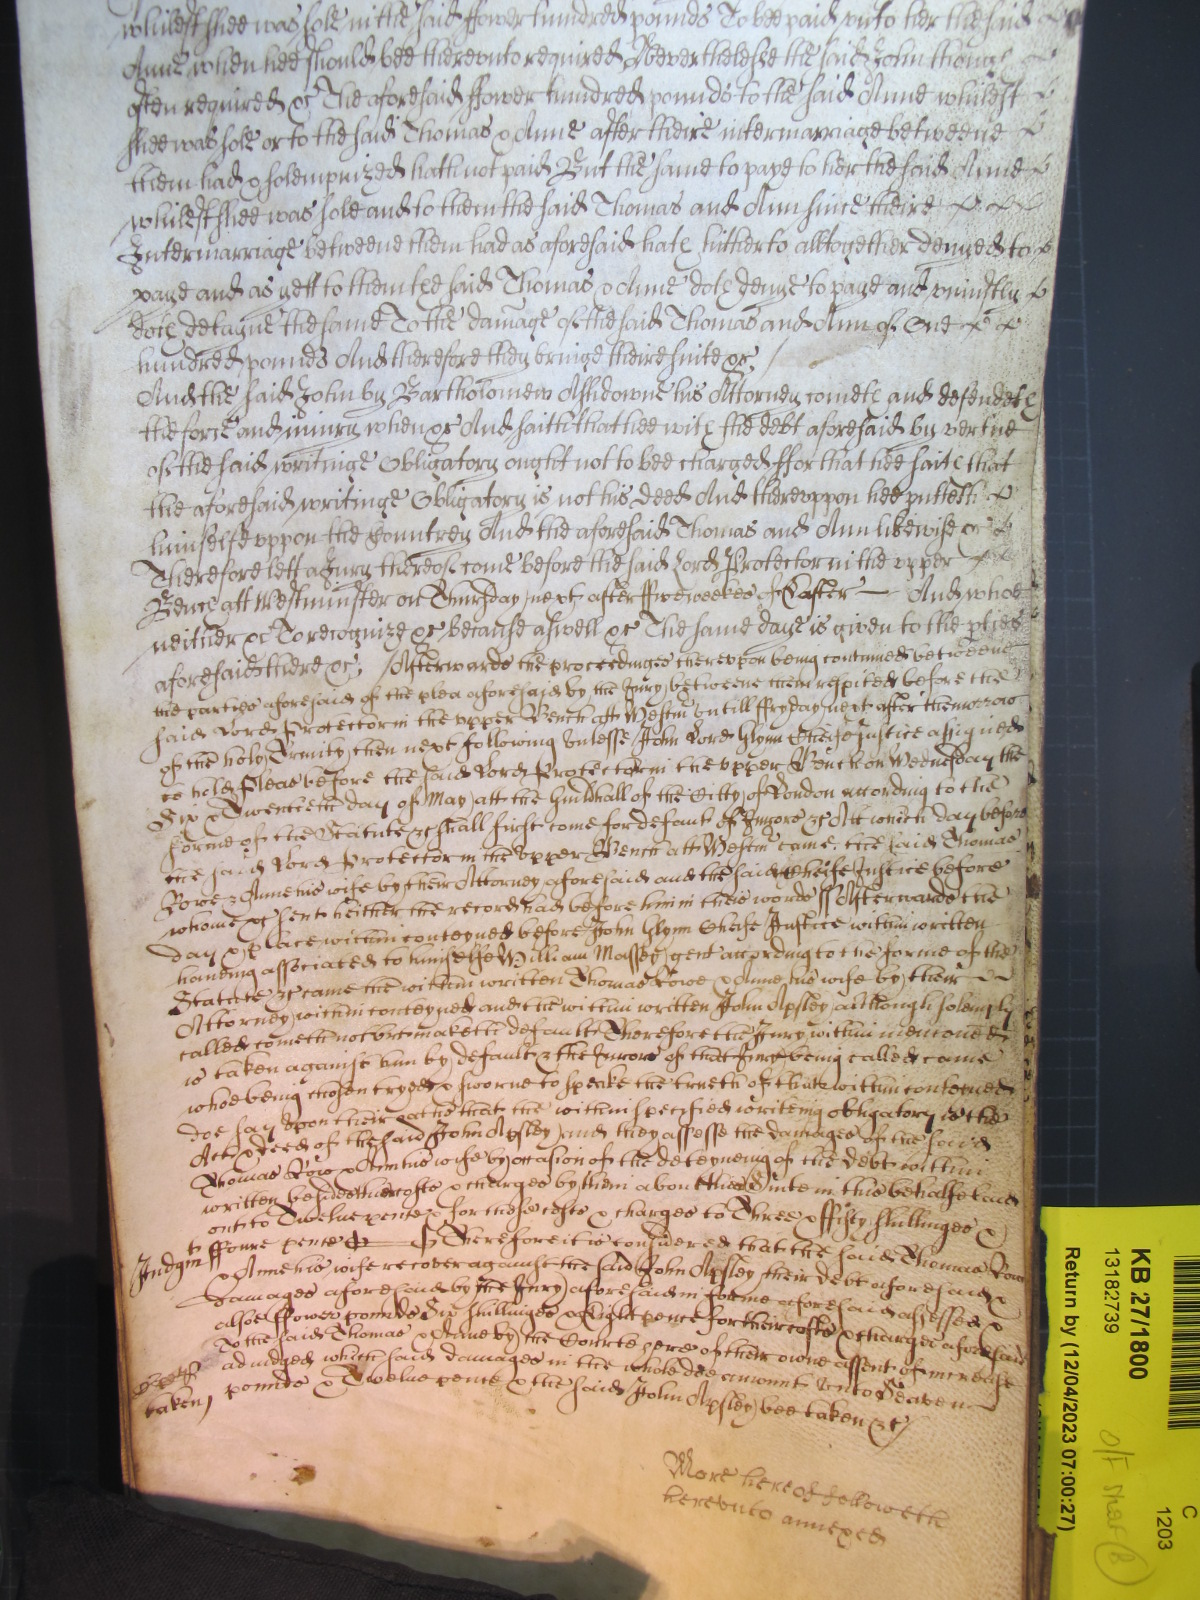 whilest shee was sole in the said ffower hundred pounds To bee paid unto her the said
Anne when hee should bee thereunto required Neverthelesse the said John though
often required &c The aforesaid ffower hundred pounds to the said Anne whilest
shee was sole or to the said Thomas & Anne after theire intermarriage betweene
them had & solempnized hath not paid But the same to paye to her the said Anne
whilest shee was sole and to them the said Thomas and Ann since theire
Intermarriage betweene them had as aforesaid hath hitherto alltogether denyed to
paye and as yett to them the said Thomas & Anne doth denye to paye and uniustly
doth detayne the same To the damage of the said Thomas and Ann of One
hundred pounds And therefore they bringe theire suite &c
And the said John by Bartholomew Ashdowne his Attorney cometh and defendeth
the force and iniury when &c And saith that hee with the debt aforesaid by vertue
of the said writinge Obligatory ought not to bee charged ffor that hee saith that
the aforesaid writinge Obligatory is not his deed And thereuppon hee putteth
himselfe uppon the Countrey And the aforesaid Thomas and Ann likewise &c
Therefore lett a Jury thereof come before the said Lord Protector in the upper
Bench att Westminster on Thursday next after ffive weekes of Easter And whoe
neither &c To recognize &c because aswell &c The same daye is given to the pties
aforesaid there &c Afterwards the proceedinges thereupon being continued betweene
the parties aforesaid of the plea aforesaid by the Jury betweene them respited before the
said Lord Protector in the upper Bench att Westm untill ffryday next after the morrow
of the holy Trinity then next following Unlesse John Lord Glynn Cheife Justice assigned
to hold Pleas before the said Lord Protector in the upper Bench on Wednesday the
Six & Twentieth day of May att the Guildhall of the Citty of London according to the
forme of the Statute &c shall first come for default of Jurors &c Att which day before
the said Lord Protector in the upper Bench att Westm came the said Thomas
Rowe & Anne his wife by their Attorney aforesaid and the said Cheife Justice before
whome &c sent hether the record had before him in theis words ss Afterwards the
day & place within conteyned before John Glynn Cheife Justice within written
haveing associated to himselfe William Massey gent according to the forme of the
Statute &c came the within written Thomas Rowe & Anne his wife by their
Attorney within conteyned and the within written John Apsley although solemply
called cometh not but maketh default Therefore the Jury within mencioned
is taken against him by default & the Jurors of that Jury being called came
whoe being chosen tryed & sworne to speake the trueth of that within conteyned
doe say upon their oathe that the within specified writeing obligatory is the
Act & deed of the said John Apsley and they assesse the damages of the said
Thomas Row & Ann his wife by occasion of the deteyneing of the debt within
written besides their costs & charges by them about their Suite in this behalfe laid
out to Twelve pence & for those costs & charges to Three & ffifty shillinges &
ffoure pence Therefore it is considered that the said Thomas Row
Judgmt
& Anne his wife recover against the said John Apsley their debt aforesaid &
damages aforesaid by the Jury aforesaid in forme aforesaid assessed &
alsoe ffower pounds Six shillinges & Eight pence for their costs & charges aforesaid
To the said Thomas & Anne by the Courte here of their owne assent of increase
adiudged which said damages in the whole doe amount unto Seaven
pounds & Twelve pence & the said John Apsley bee taken &c
taken
More hereof followeth
hereunto annexed
KB 27/1800
13182739
Return by (12/04/2023 07:00:27)
C
1203